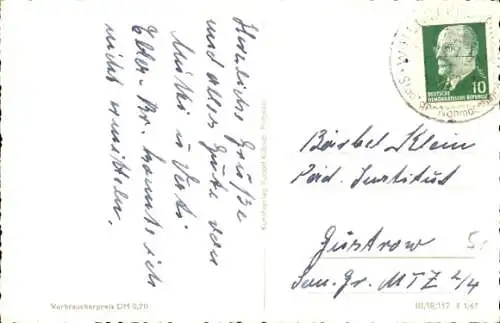 Herzliche Grüße
und alles Gute von
Mutti u. Vati.
Etw. Nr. konnte ich
nicht ermitteln.
10
DEUTSCHE
DEMOKRATISCHE REPUBLIK
Bärbel Klein
Päd. Institut
Güstrow
Sem. Gr. MTZ 2/4
Verbraucherpreis DM 0,20
III/18/117 F 1/61